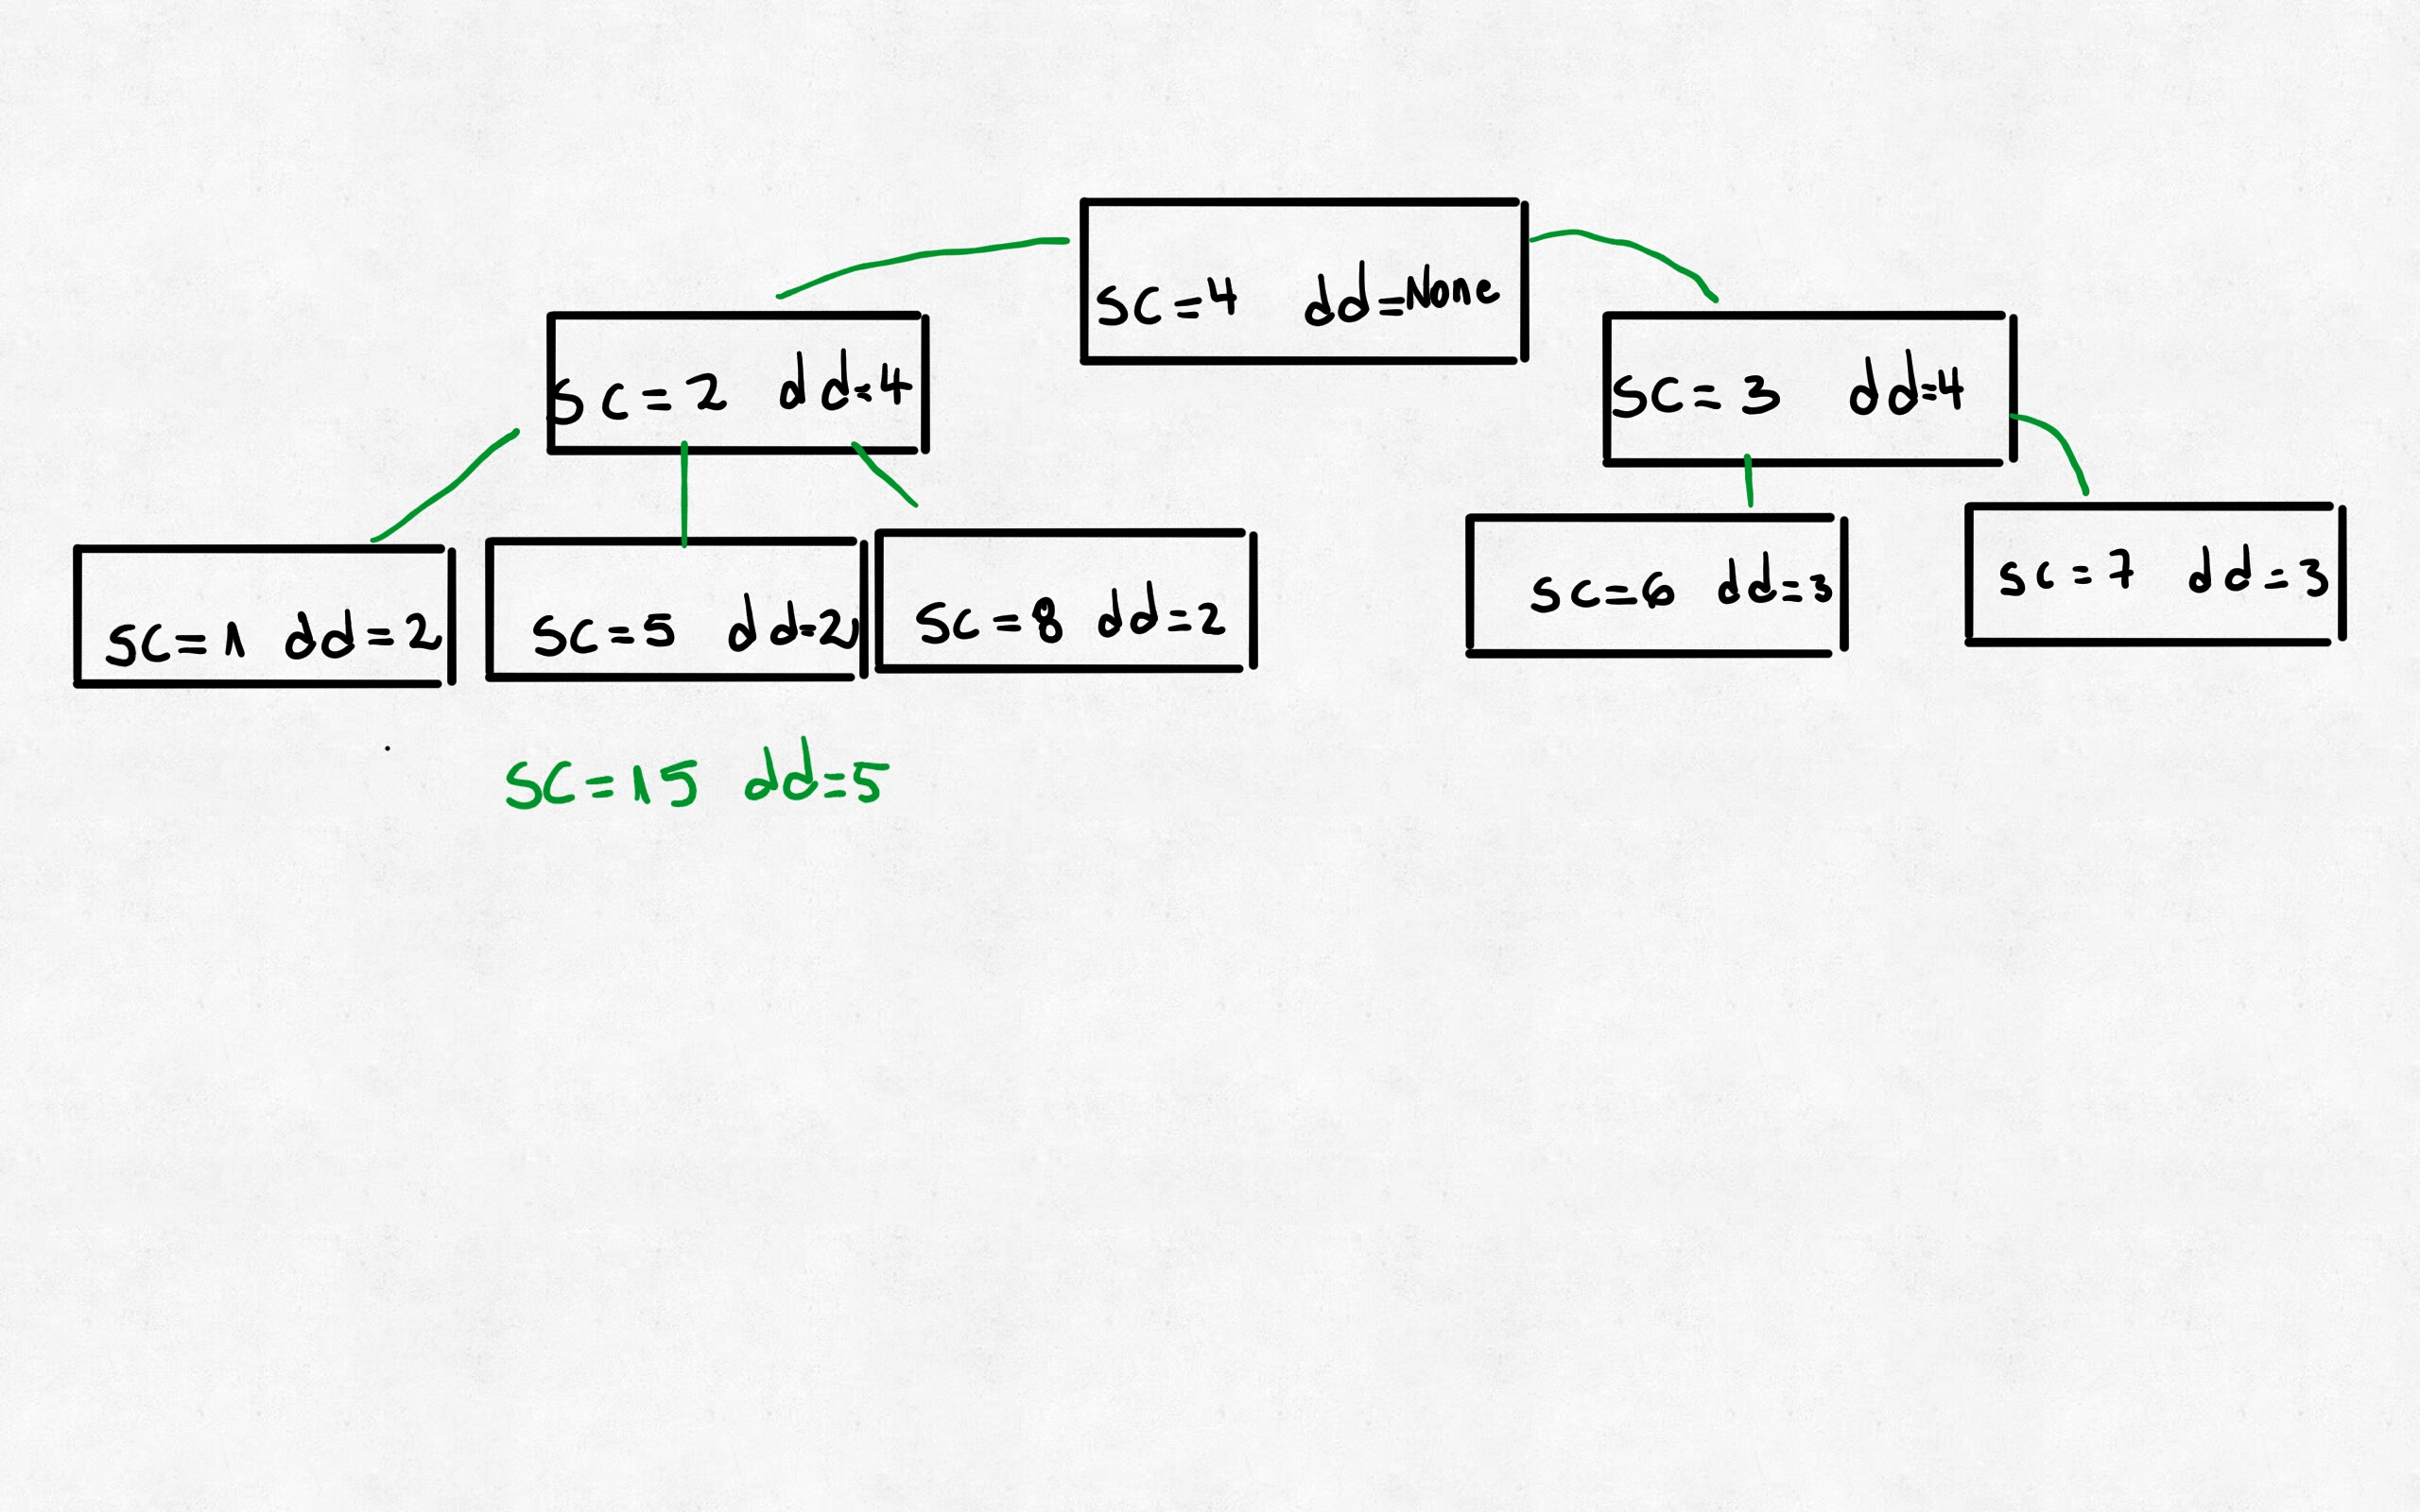 SC=4 dd=None
SC=2 dd=4
SC=3 dd=4
SC=1 dd=2
SC=5 dd=2
SC=8 dd=2
SC=6 dd=3
SC=7 dd=3
SC=15 dd=5